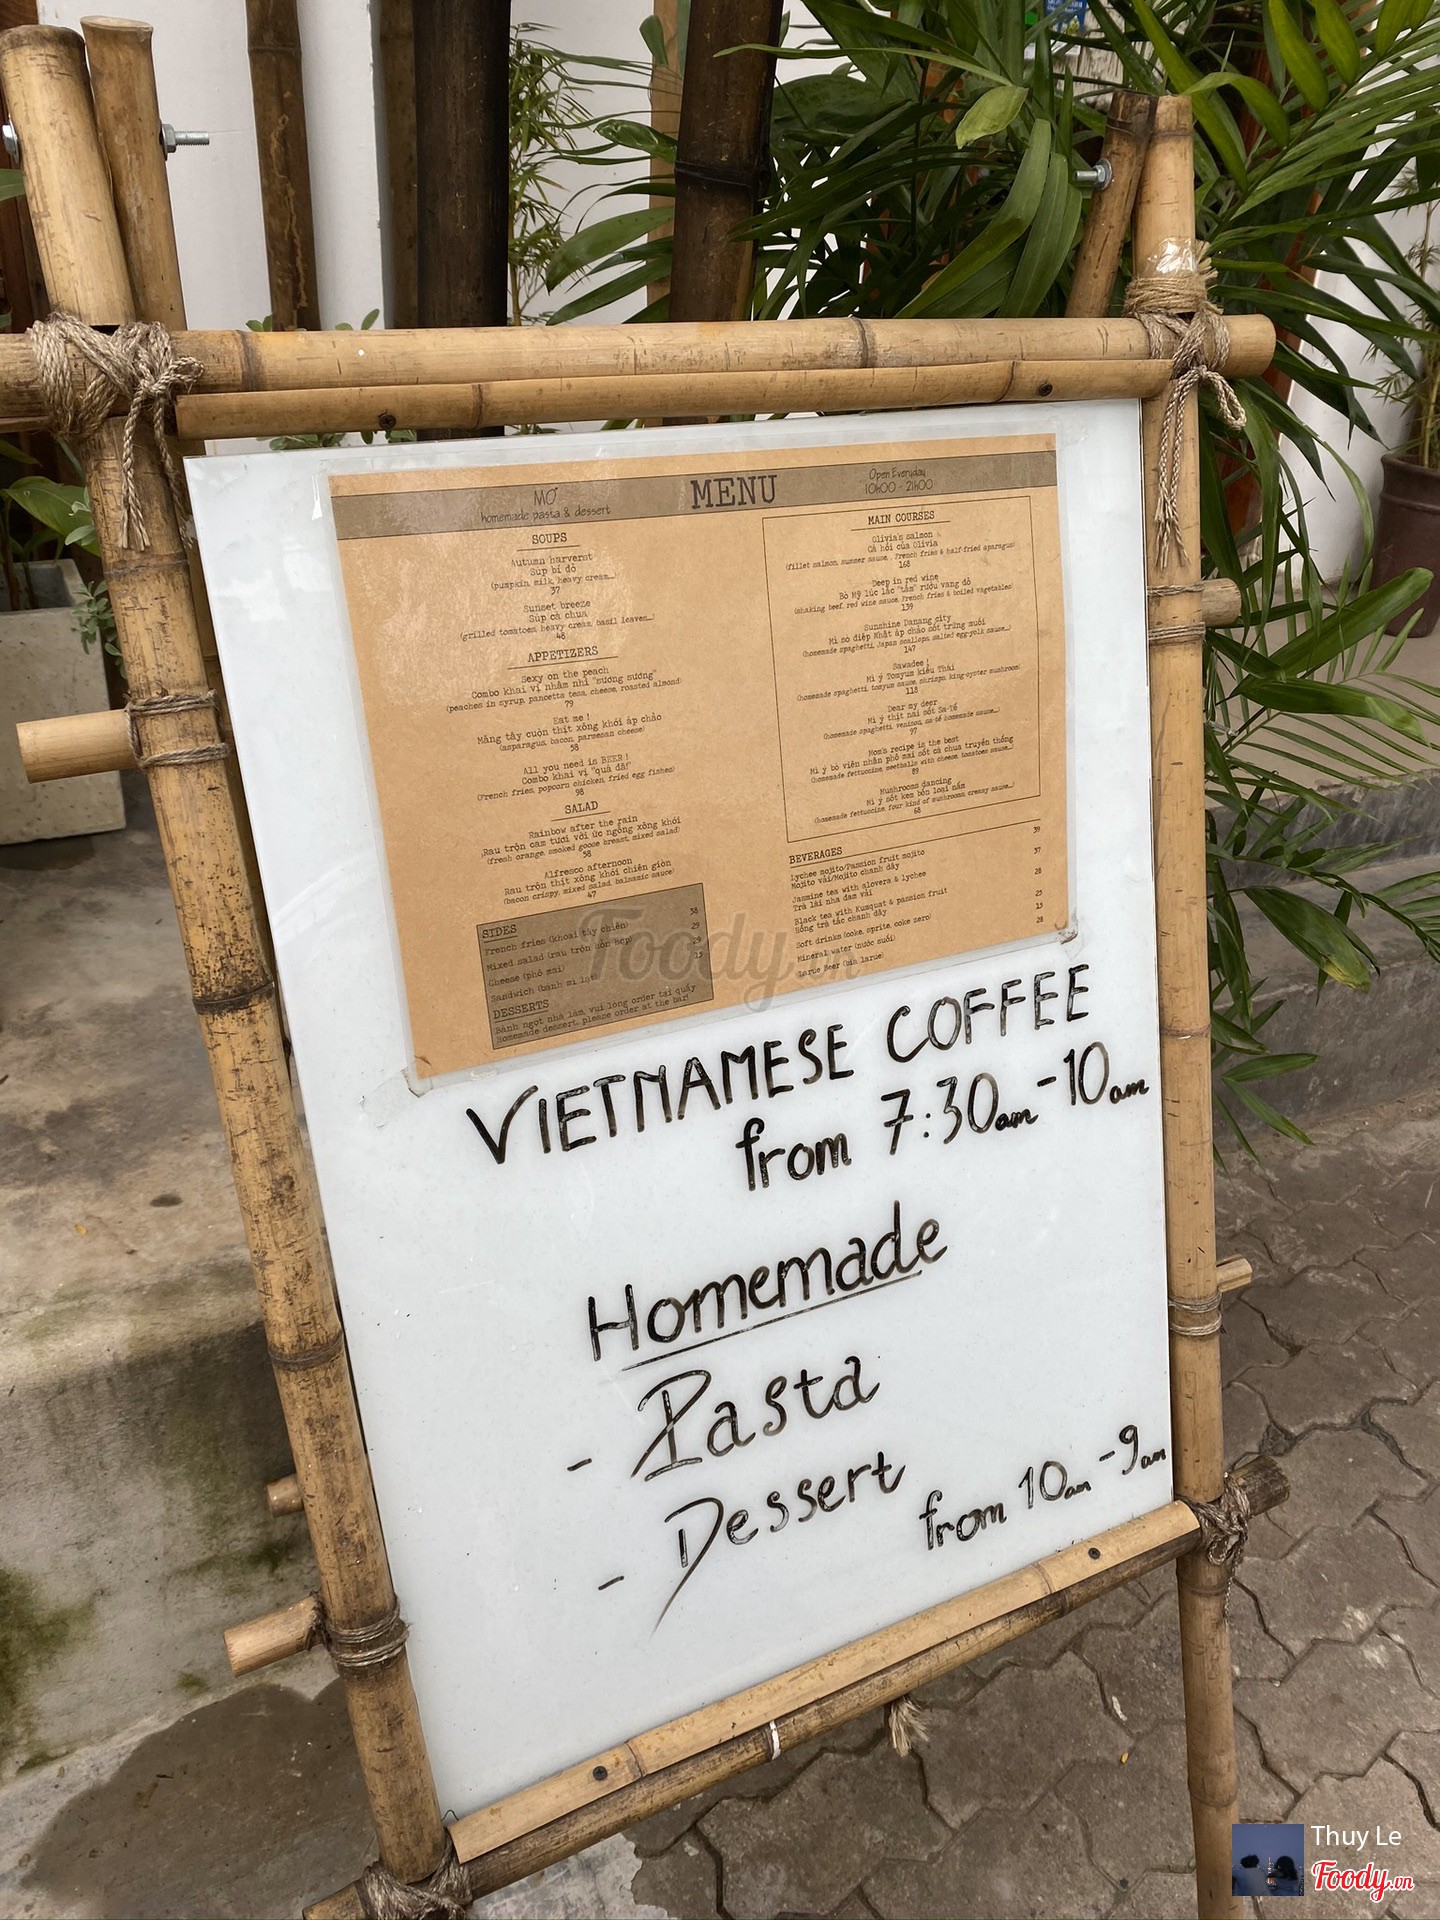 MƠ
homemade pasta & dessert
MENU
Open Everyday
10h00 - 21h00
SOUPS
Autumn harverst
Súp bí đỏ
(pumpkin, milk, heavy cream...)
37
Sunset breeze
Súp cà chua
(grilled tomatoes, heavy cream, basil leaves...)
48
APPETIZERS
Sexy on the peach
Combo khai vị nhâm nhi "sương sương"
(peaches in syrup, pancetta tesa, cheese, roasted almond)
79
Eat me !
Măng tây cuộn thịt xông khói áp chảo
(asparagus, bacon, parmesan cheese)
58
All you need is BEER !
Combo khai vị "quá đã!"
(French fries, popcorn chicken, fried egg fishes)
98
SALAD
Rainbow after the rain
Rau trộn cam tươi với ức ngỗng xông khói
(fresh orange, smoked goose breast, mixed salad)
58
Alfresco afternoon
Rau trộn thịt xông khói chiên giòn
(bacon crispy, mixed salad, balsamic sauce)
47
SIDES
French fries (khoai tây chiên) 38
Mixed salad (rau trộn hỗn hợp) 29
Cheese (phô mai)
Sandwich (bánh mì lạt) 15
DESSERTS
Bánh ngọt nhà làm vui lòng order tại quầy
Homemade dessert, please order at the bar!
MAIN COURSES
Olivia's salmon
Cá hồi của Olivia
(fillet salmon, summer sauce, French fries & half-fried aparagus)
168
Deep in red wine
Bò Mỹ lúc lắc "tắm" rượu vang đỏ
(shaking beef, red wine sauce, French fries & boiled vegetables)
139
Sunshine Danang city
Mì sò điệp Nhật áp chảo sốt trứng muối
(homemade spaghetti, Japan scallops, salted egg-yolk sauce...)
147
Sawadee !
Mì ý Tomyum kiểu Thái
(homemade spaghetti, tomyum sauce, shrisps, king-oyster mushroom)
118
Dear my deer
Mì ý thịt nai sốt Sa-tế
(homemade spaghetti, venison, sa-tế homemade sauce...)
97
Mom's recipe is the best
Mì ý bò viên nhân phô mai sốt cà chua truyền thống
(homemade fettuccine, meetballs with cheese, tomatoes sauce...)
89
Mushrooms dancing
Mì ý sốt kem bốn loại nấm
(homemade fettuccine, four kind of mushrooms, creamy sauce...)
68
BEVERAGES 39
Lychee mojito/Passion fruit mojito 37
Mojito vải/Mojito chanh dây
Jasmine tea with alovera & lychee 28
Trà lài nha đam vải
Black tea with Kumquat & passion fruit 25
Hồng trà tắc chanh dây 15
Soft drinks (coke, sprite, coke zero) 28
Mineral water (nước suối)
Larue Beer (bia larue)
Foody.vn
VIETNAMESE COFFEE
from 7:30am - 10am
Homemade
- Pasta
- Dessert
from 10am - 9am
Thuy Le
Foody.vn